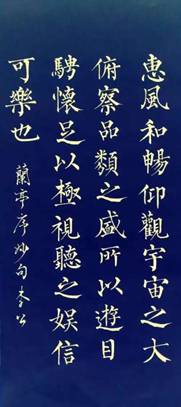 惠風和暢仰觀宇宙之大
俯察品類之盛所以遊目
騁懷足以極視聽之娛信
可樂也
蘭亭序抄句